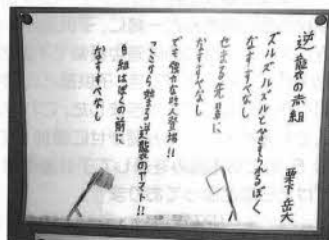 逆襲の赤組
栗下 岳大
ズルズルズルとせめられるぼく
なすすべなし
せまる先輩に
なすすべなし
でも強力な助人登場!!
ここから始まる逆襲のヤマト!!
白組はぼくの前に
なすすべなし